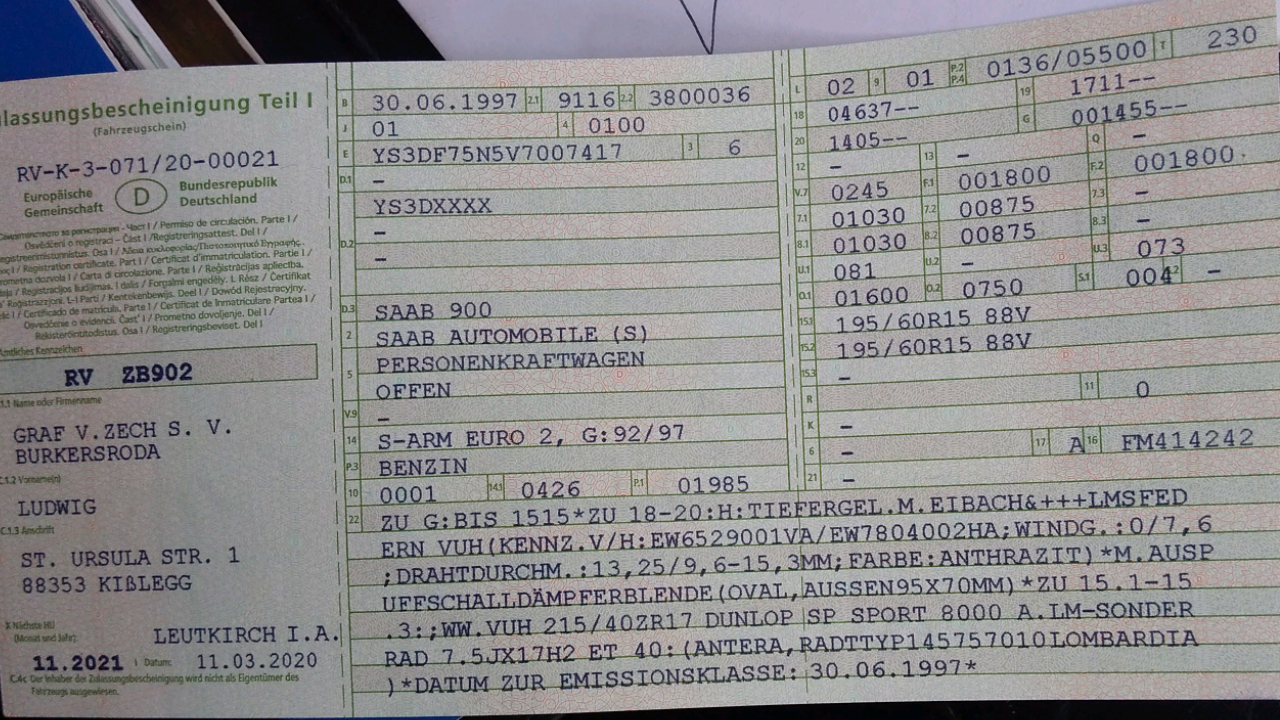 Zulassungsbescheinigung Teil I
(Fahrzeugschein)
RV-K-3-071/20-00021
Europäische Gemeinschaft
D
Bundesrepublik Deutschland
Osvědčení o registraci – Část I / Registreringsattest. Del I /
Registration certificate. Part I / Certificat d'immatriculation. Partie I /
Carta di circolazione. Parte I / Reģistrācijas apliecība.
Amtliches Kennzeichen
RV ZB902
C.1.1 Name oder Firmenname
GRAF V.ZECH S. V.
BURKERSRODA
C.1.2 Vorname(n)
LUDWIG
C.1.3 Anschrift
ST. URSULA STR. 1
88353 KIßLEGG
X Nächste HU
(Monat und Jahr)
LEUTKIRCH I.A.
11.2021 I Datum: 11.03.2020
C.4c Der Inhaber der Zulassungsbescheinigung wird nicht als Eigentümer des
Fahrzeugs ausgewiesen.
B 30.06.1997 2.1 9116 2.2 3800036
J 01 4 0100
E YS3DF75N5V7007417 3 6
D.1 –
YS3DXXXX
D.2 –
–
D.3 SAAB 900
2 SAAB AUTOMOBILE (S)
5 PERSONENKRAFTWAGEN
OFFEN
V.9 –
14 S-ARM EURO 2, G:92/97
P.3 BENZIN
10 0001 14.1 0426 P.1 01985
L 02 9 01 P.2 P.4 0136/05500 T 230
18 04637-- 19 1711--
20 1405-- G 001455--
12 – 13 – Q –
V.7 0245 F.1 001800 F.2 001800
7.1 01030 7.2 00875 7.3 –
8.1 01030 8.2 00875 8.3 –
U.1 081 U.2 – U.3 073
O.1 01600 O.2 0750 S.1 004 –
15.1 195/60R15 88V
15.2 195/60R15 88V
15.3 –
R 11 0
K –
6 – 17 A 16 FM414242
21 –
22 ZU G:BIS 1515*ZU 18-20:H:TIEFERGEL.M.EIBACH&+++LMSFED
ERN VUH(KENNZ.V/H:EW6529001VA/EW7804002HA;WINDG.:0/7,6
;DRAHTDURCHM.:13,25/9,6-15,3MM;FARBE:ANTHRAZIT)*M.AUSP
UFFSCHALLDÄMPFERBLENDE(OVAL,AUSSEN95X70MM)*ZU 15.1-15
.3:;WW.VUH 215/40ZR17 DUNLOP SP SPORT 8000 A.LM-SONDER
RAD 7.5JX17H2 ET 40:(ANTERA,RADTTYP145757010LOMBARDIA
)*DATUM ZUR EMISSIONSKLASSE:30.06.1997*